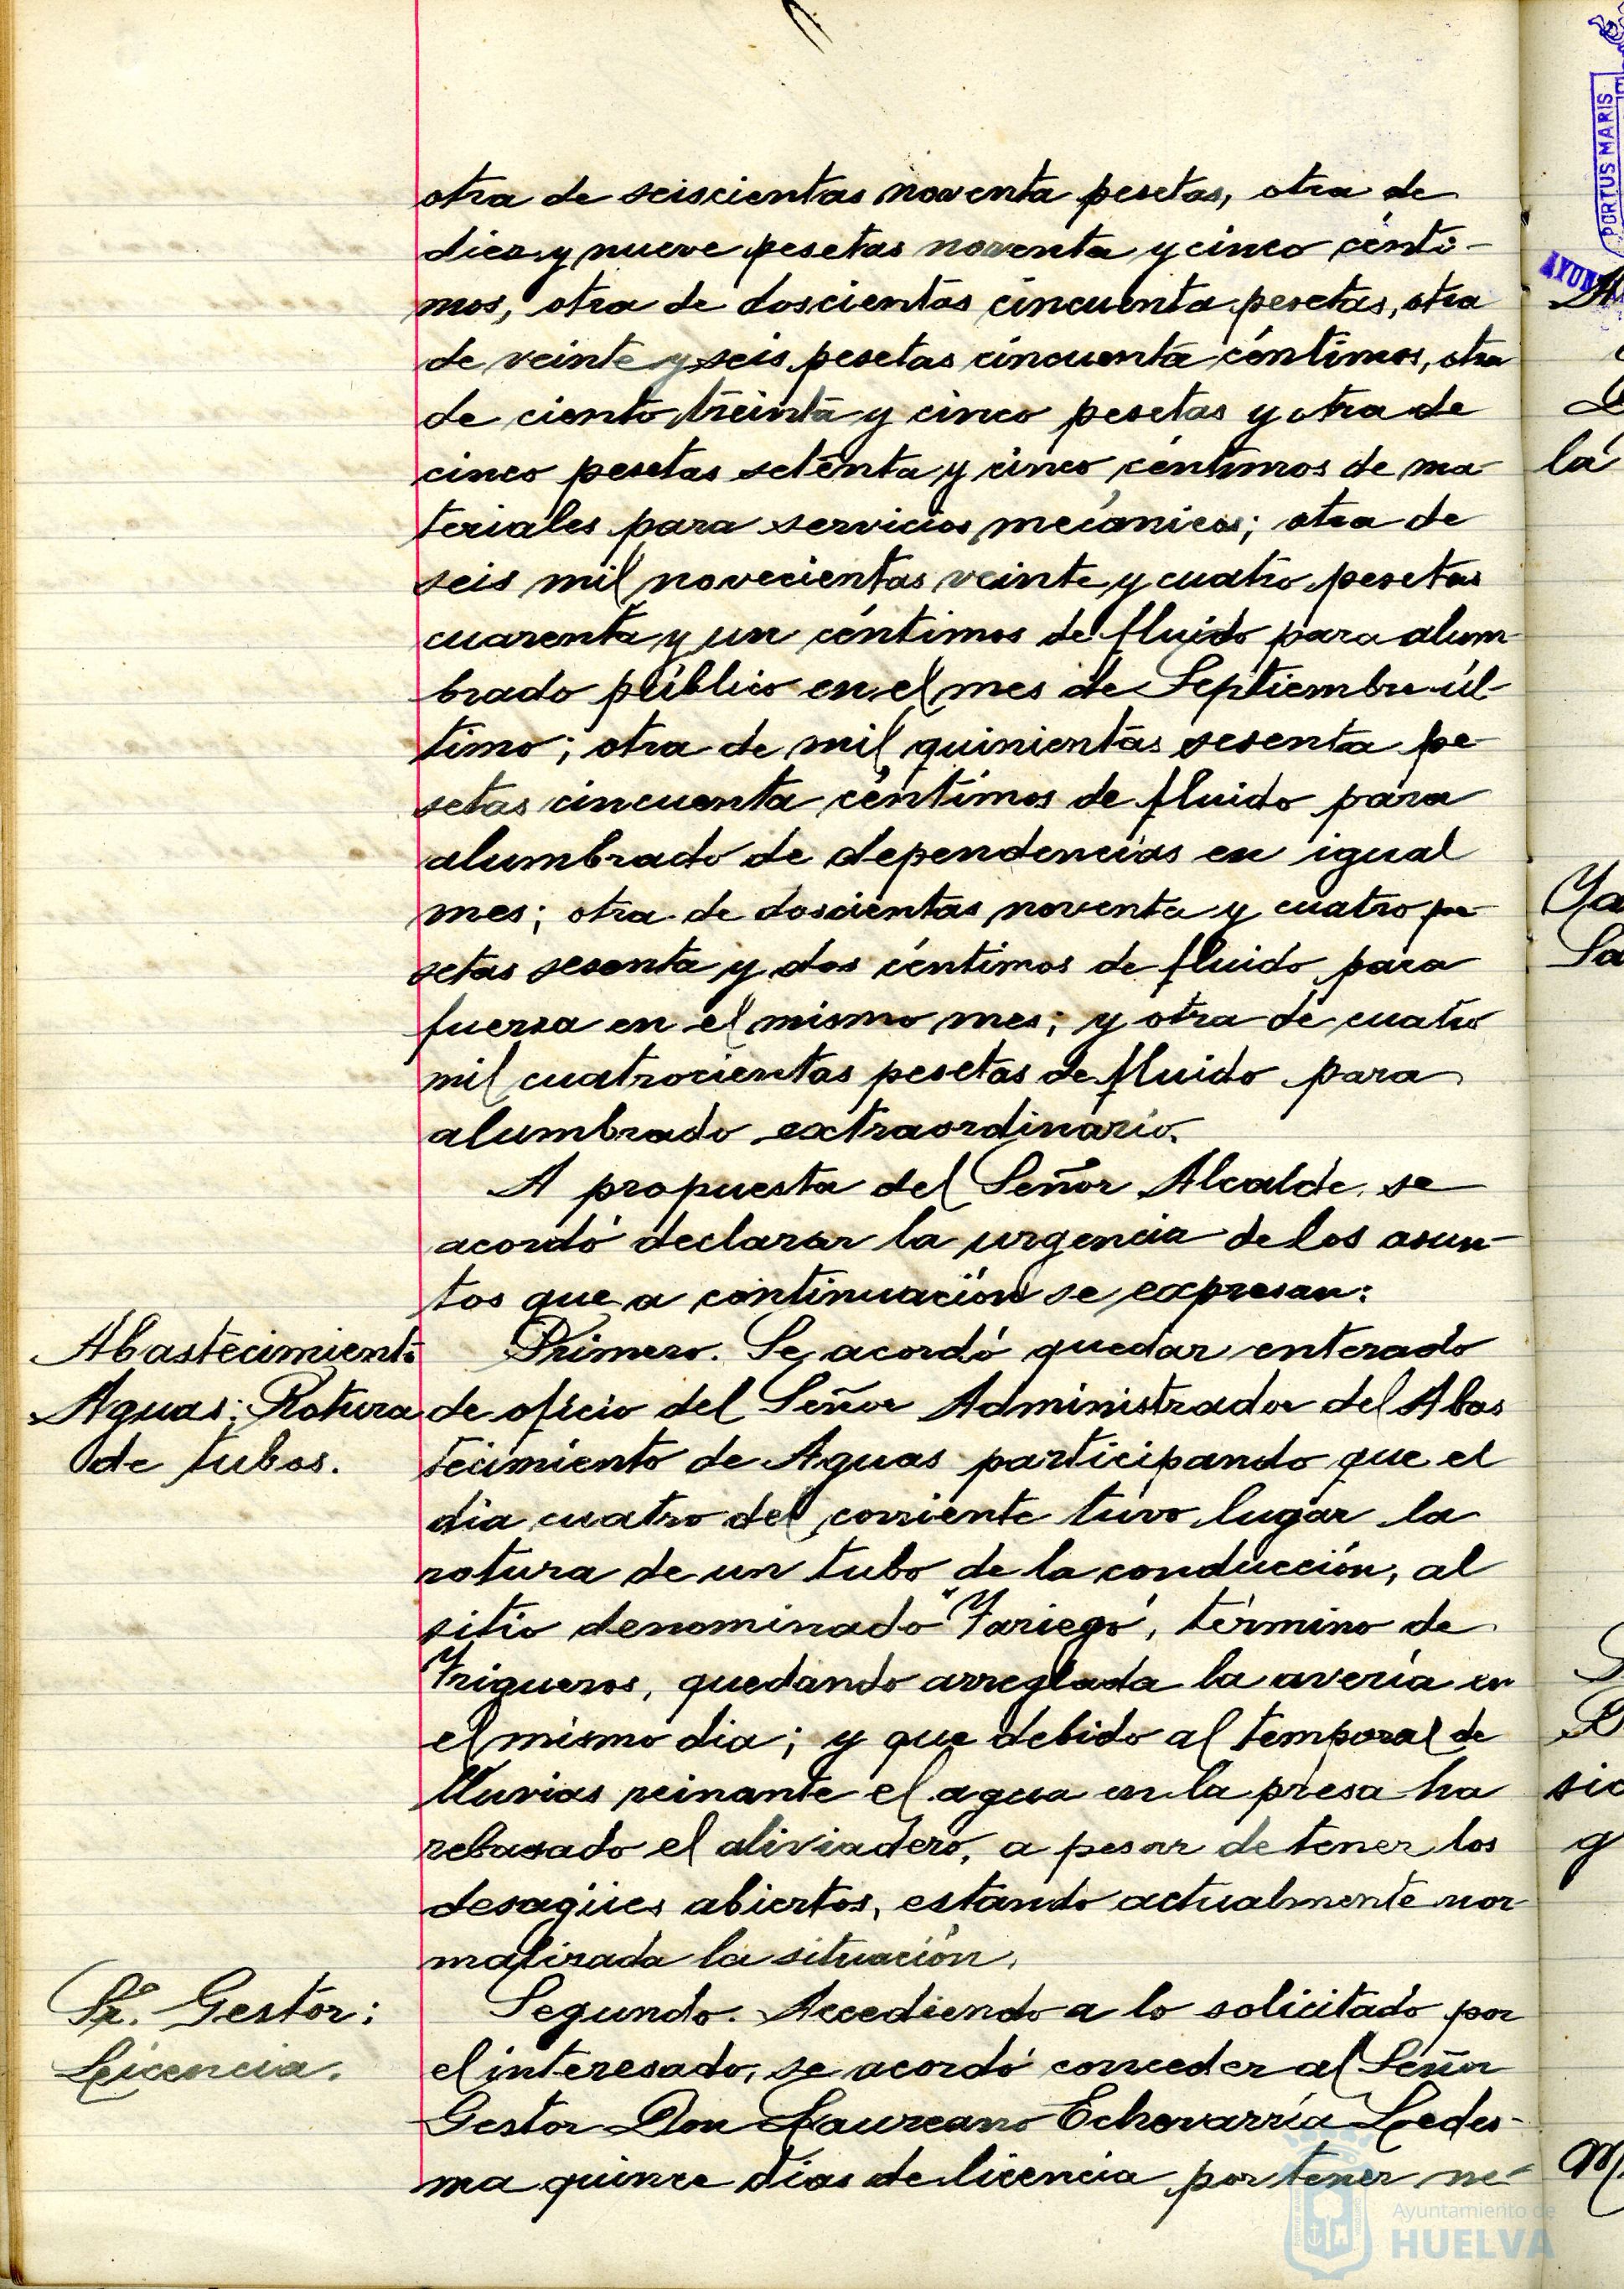 otra de seiscientas noventa pesetas, otra de
diez y nueve pesetas noventa y cinco cénti-
mos, otra de doscientas cincuenta pesetas, otra
de veinte y seis pesetas cincuenta céntimos, otra
de ciento treinta y cinco pesetas y otra de
cinco pesetas setenta y cinco céntimos de ma-
teriales para servicios mecánicos; otra de
seis mil novecientas veinte y cuatro pesetas
cuarenta y un céntimos de fluido para alum-
brado público en el mes de Septiembre úl-
timo; otra de mil quinientas sesenta pe-
setas cincuenta céntimos de fluido para
alumbrado de dependencias en igual
mes; otra de doscientas noventa y cuatro pe-
setas sesenta y dos céntimos de fluido para
fuerza en el mismo mes; y otra de cuatro
mil cuatrocientas pesetas de fluido para
alumbrado extraordinario.
A propuesta del Señor Alcalde se
acordó declarar la urgencia de los asun-
tos que a continuación se expresan:
Abastecimiento
Aguas: Rotura
de tubos.
Primero. Se acordó quedar enterado
de oficio del Señor Administrador del Abas
tecimiento de Aguas participando que el
dia cuatro del corriente tuvo lugar la
rotura de un tubo de la conducción, al
sitio denominado "Tariego", término de
Trigueros, quedando arreglada la avería en
el mismo dia; y que debido al temporal de
lluvias reinante el agua en la presa ha
rebasado el aliviadero, a pesar de tener los
desagües abiertos, estando actualmente nor
malizada la situación.
Sr. Gestor:
Licencia.
Segundo. Accediendo a lo solicitado por
el interesado, se acordó conceder al Señor
Gestor Don Laureano Echevarría Ledes-
ma quince dias de licencia por tener ne-
PORTUS MARIS
AYUN
la
Ya
Sa
sic
g
M
Ayuntamiento de
HUELVA